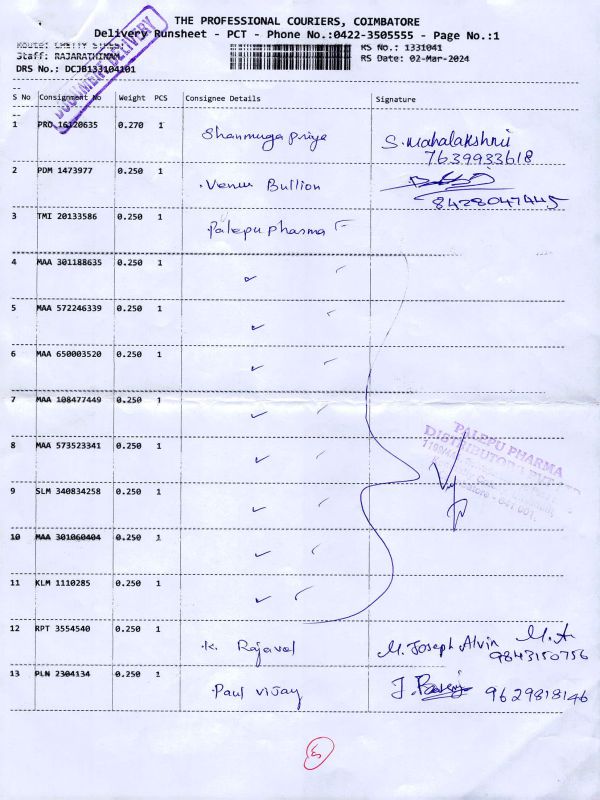 THE PROFESSIONAL COURIERS, COIMBATORE
Delivery Runsheet - PCT - Phone No.:0422-3505555 - Page No.:1
Staff: RAJARATHINAM
RS No.: 1331041
RS Date: 02-Mar-2024
DRS No.: DCJB133104101
DOCUMENT DELIVERY
S No Consignment No Weight PCS Consignee Details Signature
1 PRO 16120635 0.270 1 Shanmuga priya S. Mahalakshmi
7639933618
2 PDM 1473977 0.250 1 Venus Bullion
8428047445
3 TMI 20133586 0.250 1 Palepu pharma
4 MAA 301188635 0.250 1
5 MAA 572246339 0.250 1
6 MAA 650003520 0.250 1
7 MAA 108477449 0.250 1
8 MAA 573523341 0.250 1
PALEPU PHARMA
9 SLM 340834258 0.250 1
10 MAA 301060404 0.250 1
11 KLM 1110285 0.250 1
12 RPT 3554540 0.250 1 K. Rajavel M. Joseph Alvin M.A
9843150756
13 PLN 2304134 0.250 1 Paul vijay 9629818146